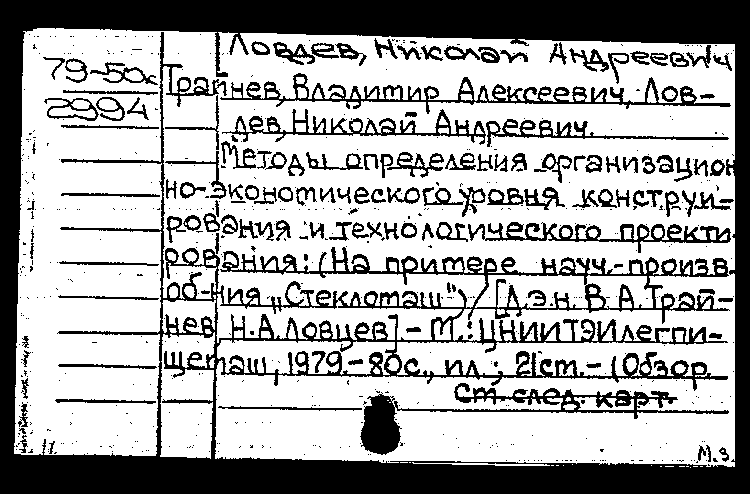 Ловцев, Николай Андреевич
79-50к
Трайнев, Владимир Алексеевич, Лов-
2994
цев, Николай Андреевич.
Методы определения организацион
но-экономического уровня конструи-
рования и технологического проекти-
рования: (На примере науч.-произв.
об-ния „Стекломаш") / [Д.э.н. В.А.Трай-
нев, Н.А.Ловцев] - М.: ЦНИИТЭИлегпи-
щемаш, 1979.- 80с., ил.; 21см.- (Обзор.
См. след. карт.
М.З.